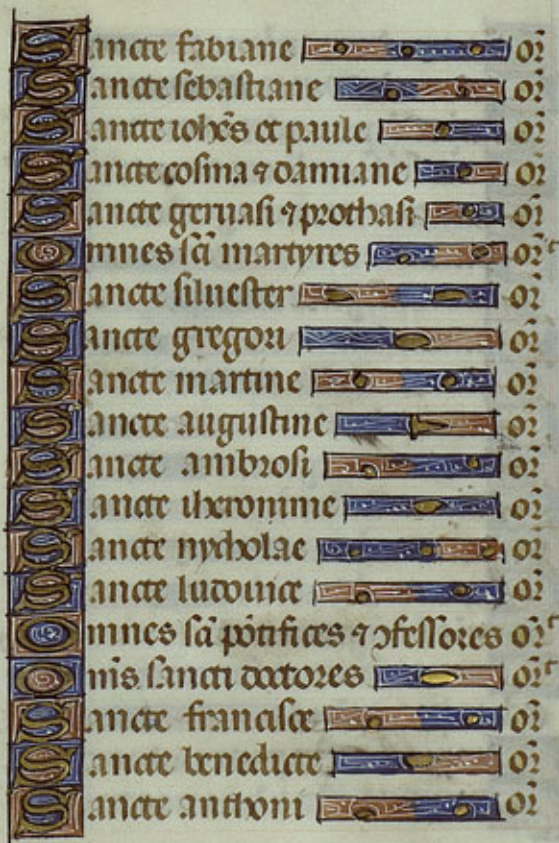 Sancte fabiane or
Sancte sebastiane or
Sancte ioh̃es et paule or
Sancte cosma ⁊ damiane or
Sancte geruasi ⁊ prothasi or
Omnes sc̃i martyres orᵉ
Sancte siluester or
Sancte gregori or
Sancte martine or
Sancte augustine or
Sancte ambrosi or
Sancte iheronime or
Sancte nycholae or
Sancte ludouice or
Omnes sc̃i põtifices ⁊ ↄfessores orᵉ
Om̃s sancti doctores orᵉ
Sancte francisce or
Sancte benedicte or
Sancte anthoni or